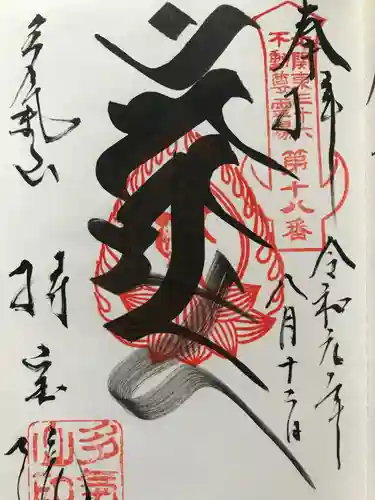 奉拝
令和元年
八月十二日
関東三十六
不動尊霊場
第十八番
多気山
持宝院